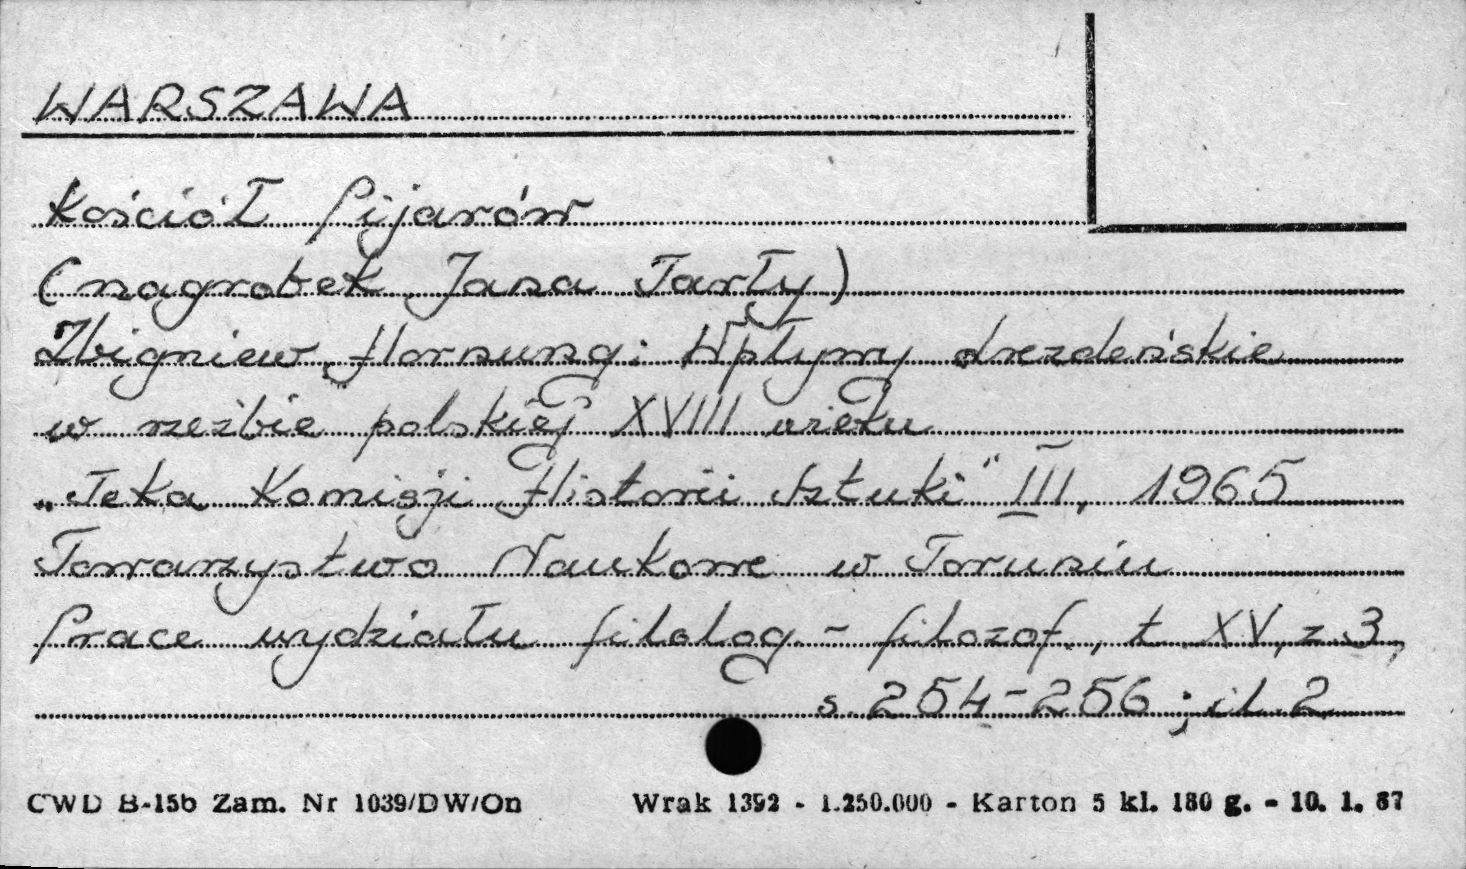 WARSZAWA
Kościół Pijarów
(nagrobek Jana Tarły)
Zbigniew Hornung: Wpływy drezdeńskie
w rzeźbie polskiej XVIII wieku
„Teka Komisji Historii Sztuki" III, 1965
Towarzystwo Naukowe w Toruniu
Prace wydziału filolog.- filozof., t XV, z 3,
s. 254-256; il. 2
CWD B-15b Zam. Nr 1039/DW/On Wrak 1392 - 1.250.000 - Karton 5 kl. 180 g. - 10. 1. 67